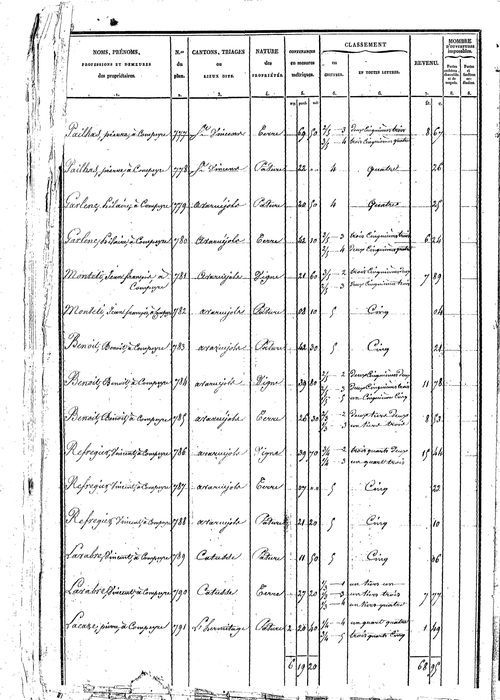 NOMS, PRÉNOMS,
PROFESSIONS ET DEMEURES
des propriétaires.
N.os
du
plan.
CANTONS, TRIAGES
ou
LIEUX DITS.
NATURE
des
PROPRIÉTÉS.
CONTENANCES
en mesures
métriques.
CLASSEMENT
EN
CHIFFRES.
EN TOUTES LETTRES.
REVENU.
NOMBRE
D'OUVERTURES
imposables.
1. 2. 3. 4. 5. 6. 7. 8.
Pailhas, pierre, à Compeyre 777 St. Vincens Terre 69 50 2/5 3 deux cinquièmes trois 8 67
3/5 4 trois cinquièmes quatre
Pailhas, pierre, à Compeyre 778 St. Vincens Pâture 22 4 quatre 26
Garlenc, hilaire, à Compeyre 779 avaruéjols Pâture 20 50 4 quatre 25
Garlenc, hilaire, à Compeyre 780 avaruéjols Terre 42 10 3/5 3 trois cinquièmes trois 6 24
2/5 4 deux cinquièmes quatre
Monteté, Jean françois, à 781 avaruéjols Vigne 21 60 3/5 2 trois cinquièmes deux 7 89
Compeyre 2/5 3 deux cinquièmes trois
Monteté, Jean françois, à 782 avaruéjols Pâture 08 10 5 Cinq 04
Benoit, Benoit, à Compeyre 783 avaruéjols Pâture 42 30 5 Cinq 21
Benoit, Benoit, à Compeyre 784 avaruéjols Vigne 39 80 2/5 2 deux cinquièmes deux 11 78
2/5 3 deux cinquièmes trois
1/5 5 un cinquième cinq
Benoit, Benoit, à Compeyre 785 avaruéjols Terre 26 30 2/3 2 deux tiers deux 8 53
1/3 3 un tiers trois
Refregier, Vincent, à Compeyre 786 avaruéjols Vigne 39 70 3/4 2 trois quarts deux 15 44
1/4 3 un quart trois
Refregier, Vincent, à Compeyre 787 avaruéjols Terre 07 5 Cinq 22
Refregier, Vincent, à Compeyre 788 avaruéjols Pâture 21 20 5 Cinq 10
Larabre, Vincent, à Compeyre 789 Catusse Pâture 11 50 5 Cinq 06
Larabre, Vincent, à Compeyre 790 Catusse Terre 27 20 1/3 1 un tiers un 7 77
1/3 3 un tiers trois
1/3 4 un tiers quatre
Lacaze, pierre, à Compeyre 791 L'hermitage Pâture 2 20 40 1/4 4 un quart quatre 1 49
3/4 5 trois quarts cinq
6 19 20 68 95